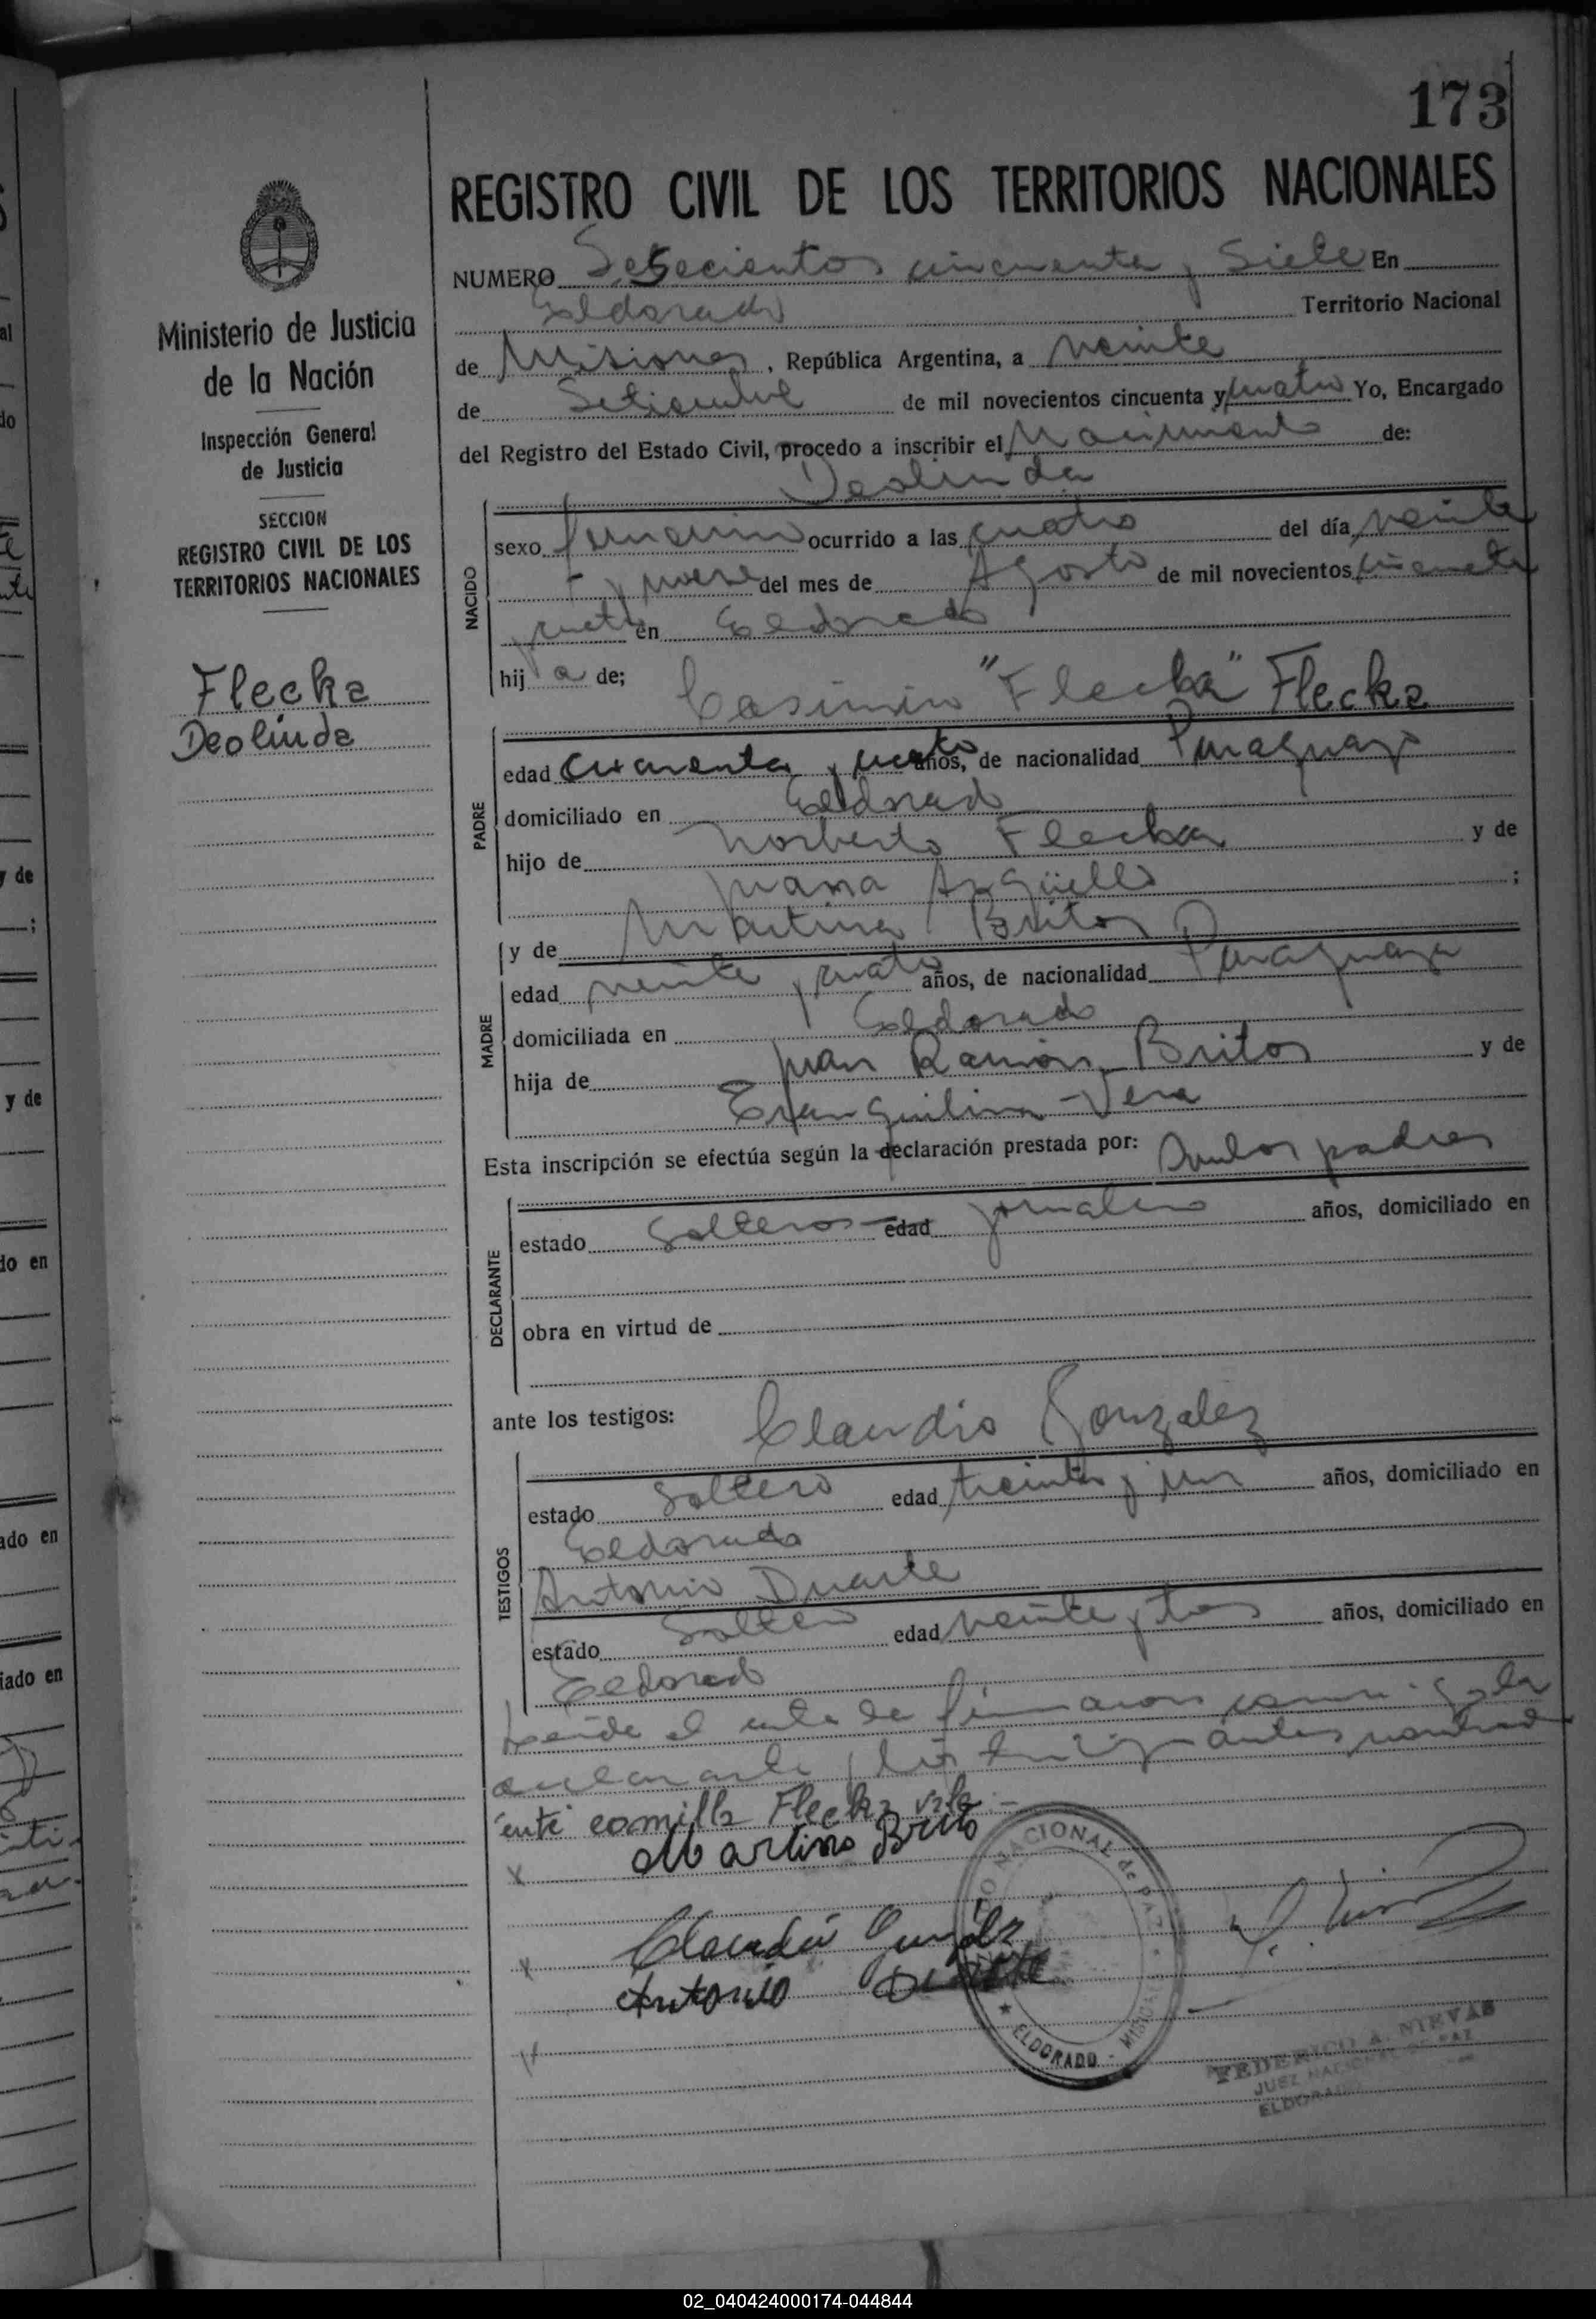 173
REGISTRO CIVIL DE LOS TERRITORIOS NACIONALES
Ministerio de Justicia
de la Nación
Inspección General
de Justicia
SECCION
REGISTRO CIVIL DE LOS
TERRITORIOS NACIONALES
Flecka
Deolinda
NUMERO cincuenta y Siete En
Eldorado Territorio Nacional
de Misiones, República Argentina, a veinte
de Setiembre de mil novecientos cincuenta y cuatro Yo, Encargado
del Registro del Estado Civil, procedo a inscribir el Nacimiento de:
Deolinda
NACIDO
sexo femenino ocurrido a las cuatro del día veinte
y nueve del mes de Agosto de mil novecientos cincuenta
y cuatro en Eldorado
hija de; Casimiro "Flecha" Flecka
PADRE
edad cuarenta y cuatro años, de nacionalidad Paraguayo
domiciliado en Eldorado
hijo de Norberto Flecka y de
Juana Argüello ;
y de Martina Britos
MADRE
edad veinte y cuatro años, de nacionalidad Paraguaya
domiciliada en Eldorado
hija de Juan Ramón Britos y de
Tranquilina Vera
Esta inscripción se efectúa según la declaración prestada por: Ambos padres
DECLARANTE
estado Solteros edad jornalero años, domiciliado en
obra en virtud de
ante los testigos: Claudio Gonzalez
TESTIGOS
estado Soltero edad treinta y un años, domiciliado en
Eldorado
Antonio Duarte
estado Soltero edad veinte y tres años, domiciliado en
Eldorado
Leída el acta la firmaron conmigo la
declarante y los testigos antes nombrad
"entre comilla Flecka vale.-
Martina Brito
Claudio Gonzalez
Antonio Duarte
NACIONAL de PAZ
★ ELDORADO - MISIONES
FEDERICO A. NIEVAS
JUEZ NACIONAL DE PAZ
ELDORADO
al
do
y de
;
y de
do en
ado en
iado en
02_040424000174-044844